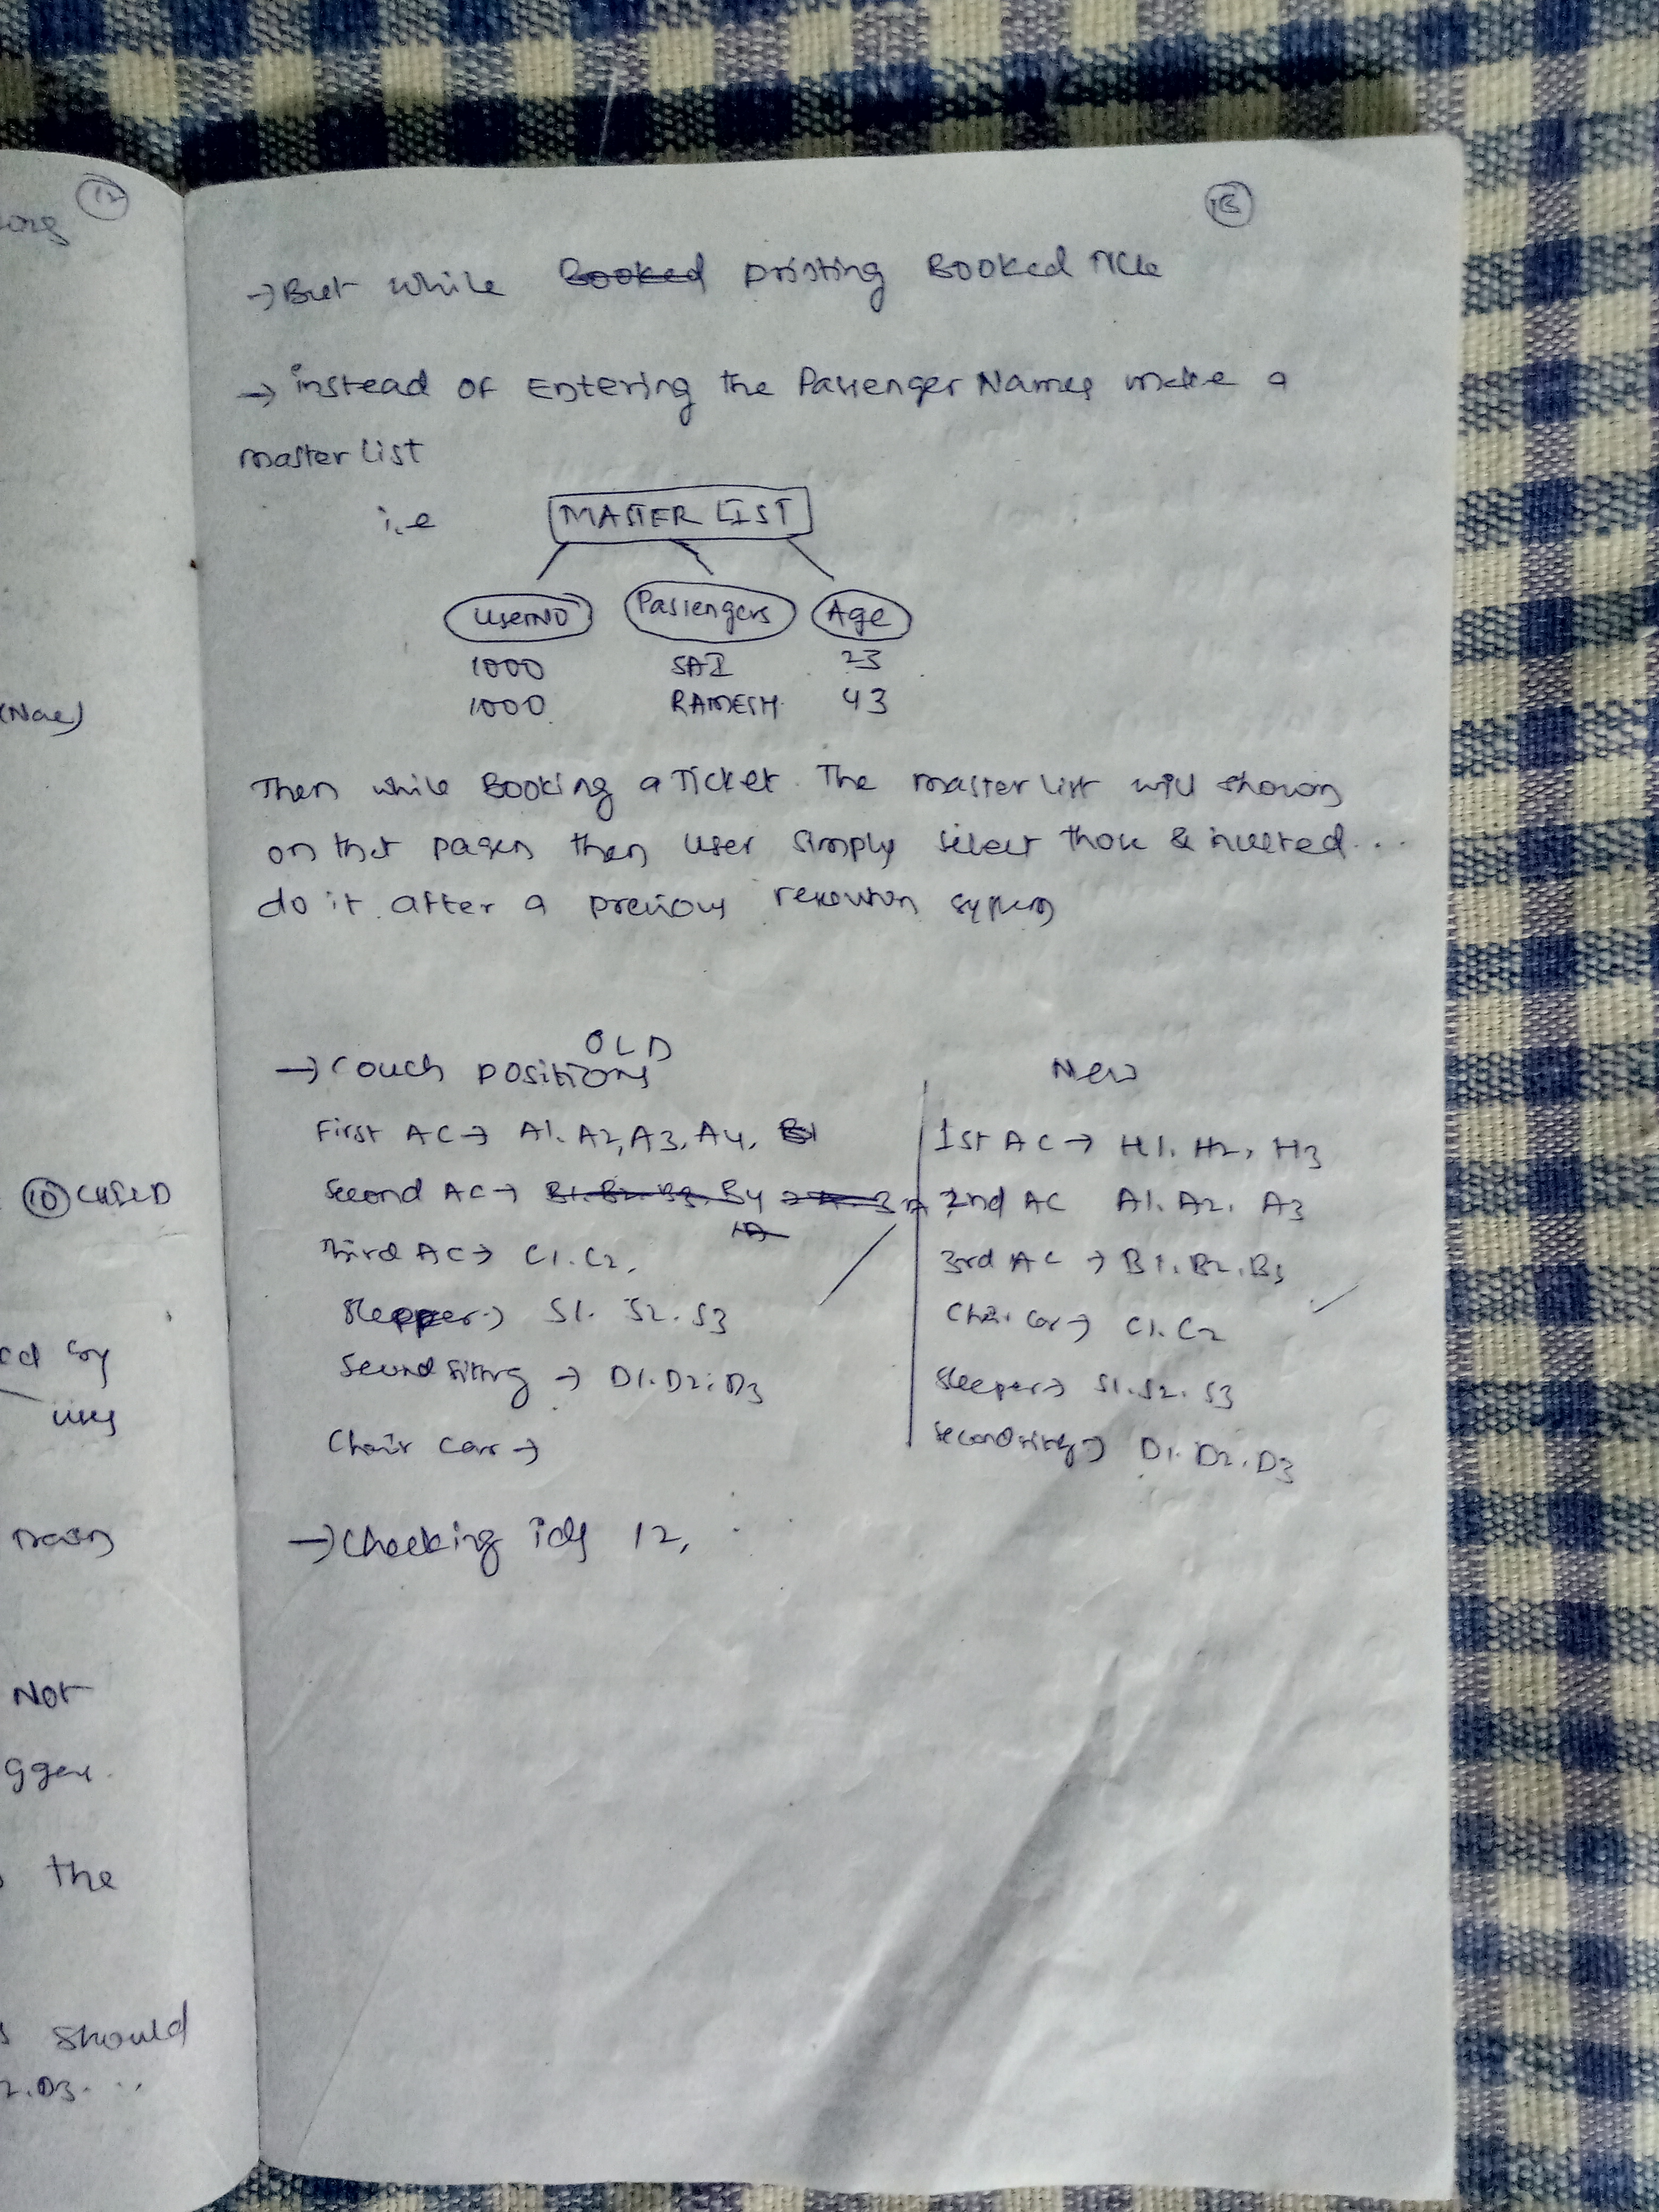 12
13
→ But while Booked printing Booked
→ instead of Entering the Passenger Names make a
master list
i.e MASTER LIST
UserNO Passengers Age
1000 SAI 23
1000 RAMESH 43
Then while Booking a Ticket. The master list will shown
on that pages then user simply select those &
do it after a previous system
OLD
→ Couch positions
First AC → A1, A2, A3, A4, B1
Second AC → B1. B2. B3. B4
Third AC → C1. C2,
Sleeper → S1. S2. S3
Second sitting → D1. D2. D3
Chair Car →
New
1st AC → H1. H2, H3
2nd AC A1. A2. A3
3rd AC → B1. B2. B3
Chair Car → C1. C2
Sleeper → S1. S2. S3
Second sitting → D1. D2. D3
→ Checking ids 12,
10 CHILD
Not
the
should
2. D3. ..